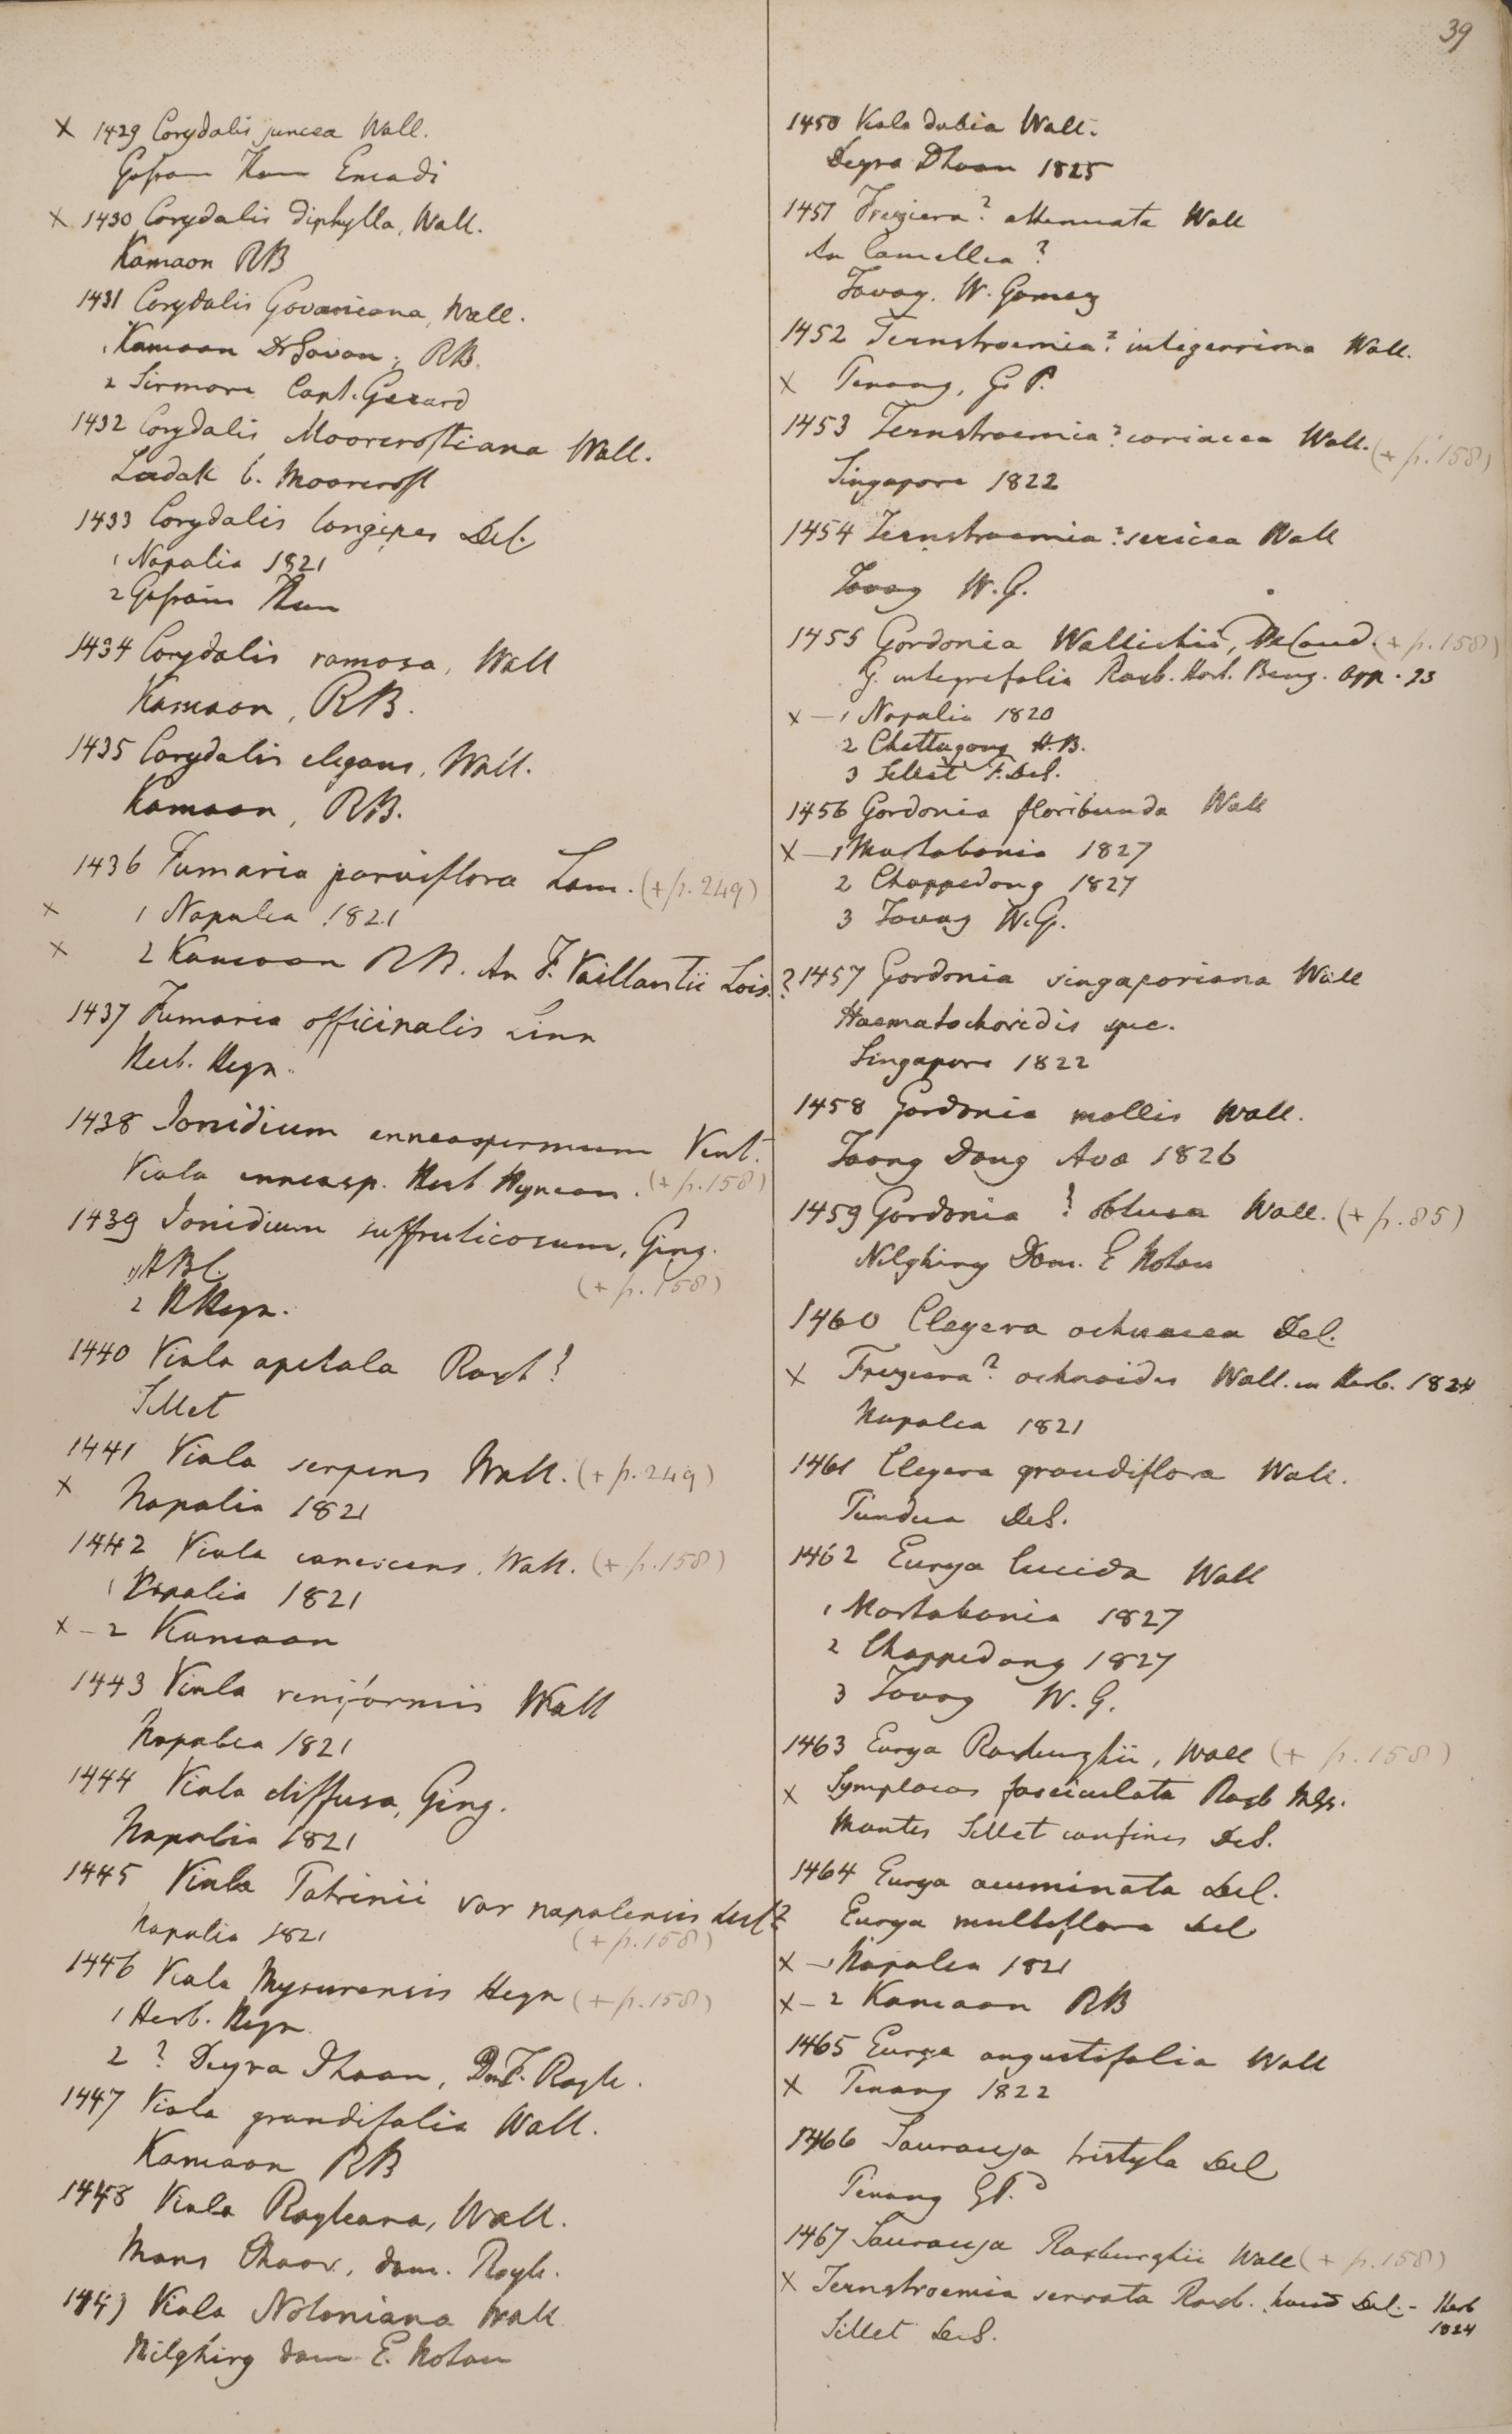 39
X 1429 Corydalis juncea Wall.
Gossain Than Emodi
X 1430 Corydalis diphylla, Wall.
Kamaon RB
1431 Corydalis Govaniana, Wall.
1 Kamaon Dr Govan; RB.
2 Sirmore Capt. Gerard
1432 Corydalis Moorcroftiana Wall.
Ladak G. Moorcroft
1433 Corydalis longipes Del.
1 Napalia 1821
2 Gossain Than
1434 Corydalis ramosa, Wall
Kamaon, RB.
1435 Corydalis elegans, Wall.
Kamaon, RB.
1436 Fumaria parviflora Lam. (+ p. 249)
X 1 Napalea 1821
X 2 Kamaon RB. An F. Vaillantii Lois.?
1437 Fumaria officinalis Linn
Herb. Heyn.
1438 Ionidium enneaspermum Vent.
Viola enneasp. Herb Heynean. (+ p. 158)
1439 Ionidium suffruticosum, Ging.
(+ p. 158)
1 HBC.
2 HHeyn.
1440 Viola apetala Roxb!
Sillet
1441 Viola serpens Wall. (+ p. 249)
X Napalia 1821
1442 Viola canescens, Wall. (+ p. 158)
1 Napalia 1821
X - 2 Kamaon
1443 Viola reniformis Wall
Napalea 1821
1444 Viola diffusa, Ging.
Napalia 1821
1445 Viola Patrinii var napalensis Del?
Napalia 1821 (+ p. 158)
1446 Viola Mysurensis Heyn (+ p. 158)
1 Herb. Heyn
2 ? Deyra Dhoon, Dn F. Royle.
1447 Viola grandifolia Wall.
Kamaon RB
1448 Viola Royleana, Wall.
Mons Choor, dom. Royle.
1449 Viola Notoniana Wall
Nilghiry dom E. Noton
1450 Viola dubia Wall.
Deyra Dhoon 1825
1451 Freziera? attenuata Wall
An Camellia?
Tavoy. W. Gomez
1452 Ternstroemia? integerrima Wall.
X Penang, G. P.
1453 Ternstroemia? coriacea Wall. (+ p. 158)
Singapore 1822
1454 Ternstroemia? sericea Wall
Tavoy W. G.
1455 Gordonia Wallichii, DeCand. (+ p. 158)
G. integrifolia Roxb. Hort. Beng. app. 93
X - 1 Napalia 1820
2 Chettagong H. B.
3 Sillet F. De S.
1456 Gordonia floribunda Wall
X - 1 Martabania 1827
2 Chappedong 1827
3 Tavoy W. G.
1457 Gordonia singaporiana Wall
Haematocharidis spec.
Singapore 1822
1458 Gordonia mollis Wall.
Taong Dong Ava 1826
1459 Gordonia ? obtusa Wall. (+ p. 85)
Nilghiry Dom. E Noton
1460 Cleyera ochnacea Del.
X Freziera? ochnoides Wall. in Herb. 1824
Napalea 1821
1461 Cleyera grandiflora Wall.
Pundua DeS.
1462 Eurya lucida Wall
1 Martabania 1827
2 Chappedong 1827
3 Tavoy W. G.
1463 Eurya Roxburghii, Wall (+ p. 158)
X Symplocos fasciculata Roxb Mss.
Montes Sillet confines DeS.
1464 Eurya acuminata Del.
Eurya multiflora Del
X - 1 Napalea 1821
X - 2 Kamaon RB
1465 Eurya angustifolia Wall
X Penang 1822
1466 Saurauja tristyla Del
Penang GP.
1467 Saurauja Roxburghii Wall (+ p. 158)
X Ternstroemia serrata Roxb. haud Del. - Herb
1824
Sillet DeS.